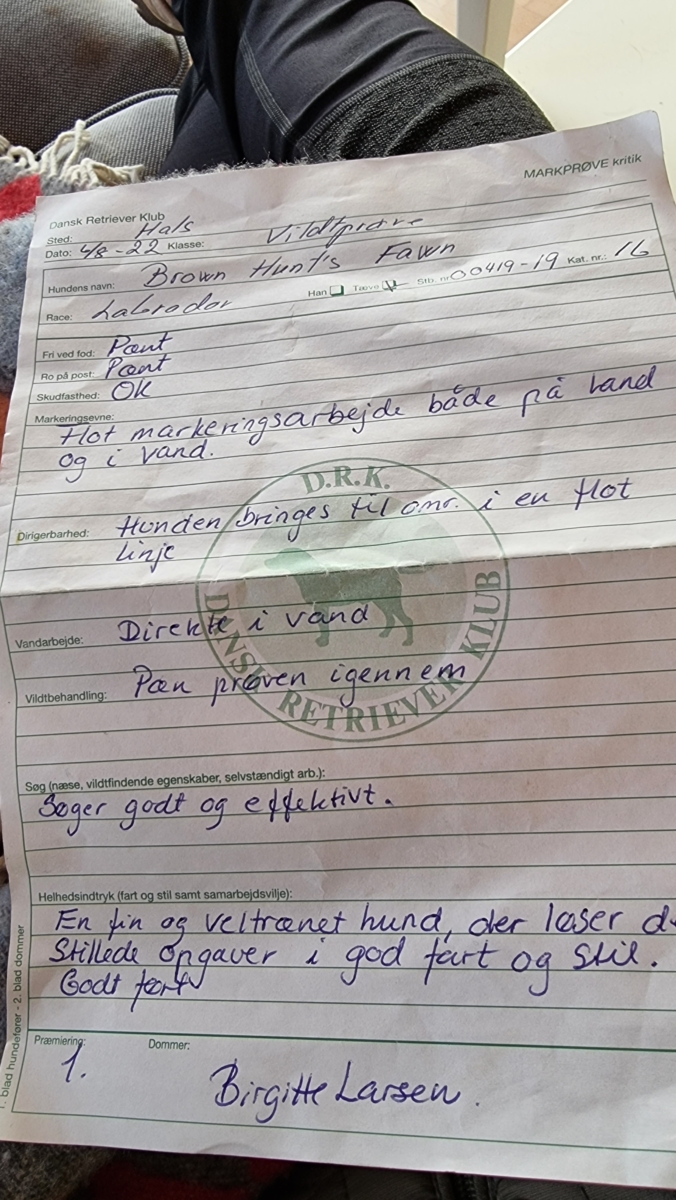 MARKPRØVE kritik
Dansk Retriever Klub
Sted: Hals
Dato: 4/8-22 Klasse: Vildtprøve
Hundens navn: Brown Hunt's Fawn
Race: Labrador Han Tæve Stb. nr. 00419-19 Kat. nr.: 16
Fri ved fod: Pænt
Ro på post: Pænt
Skudfasthed: OK
Markeringsevne:
Flot markeringsarbejde både på land
og i vand.
D.R.K.
Dirigerbarhed: Hunden bringes til omr. i en flot
linje
Vandarbejde: Direkte i vand
DANSK RETRIEVER KLUB
Vildtbehandling: Pæn prøven igennem
Søg (næse, vildtfindende egenskaber, selvstændigt arb.):
Søger godt og effektivt.
Helhedsindtryk (fart og stil samt samarbejdsvilje):
En fin og veltrænet hund, der løser d
stillede opgaver i god fart og stil.
Godt ført
Præmiering: Dommer:
1. Birgitte Larsen.
1. blad hundefører - 2. blad dommer